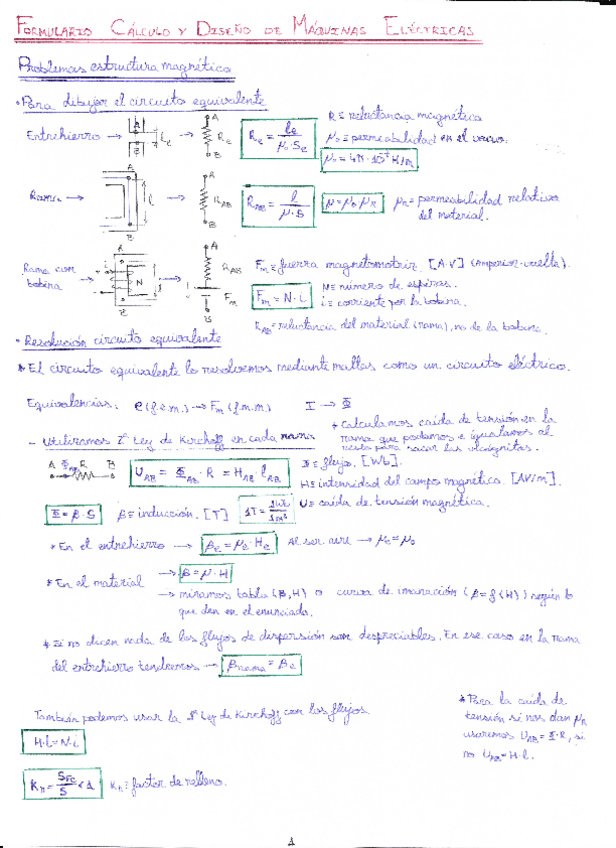 FORMULARIO CÁLCULO Y DISEÑO DE MÁQUINAS ELÉCTRICAS
Problemas estructura magnética
• Para dibujar el circuito equivalente
Entrehierro → A B le → A Re B Re = le / μ0·Se
R ≡ reluctancia magnética
μ0 ≡ permeabilidad en el vacío.
μ0 = 4π·10⁻⁷ H/m
Rama → A l B → A RAB B RAB = l / μ·S μ = μ0·μR μR ≡ permeabilidad relativa
del material.
Rama con bobina → A i N B → A RAB Fm B
Fm ≡ fuerza magnetomotriz. [A·V] (Amperior-vuelta).
Fm = N·i
N ≡ número de espiras.
i ≡ corriente por la bobina.
RAB ≡ reluctancia del material (rama), no de la bobina.
• Resolución circuito equivalente
* El circuito equivalente lo resolvemos mediante mallas como un circuito eléctrico.
Equivalencias: e (f.e.m.) → Fm (f.m.m) I → Φ
* Calculamos caída de tensión en la
rama que podamos e igualamos al
resto para sacar las incógnitas.
- Utilizamos 2ª Ley de Kirchoff en cada rama
A ΦAB R B UAB = ΦAB · R = HAB lAB
Φ ≡ flujo. [Wb].
H ≡ intensidad del campo magnético. [AV/m].
U ≡ caída de tensión magnética.
Φ = β·S β ≡ inducción. [T] 1T = 1Wb / 1m²
* En el entrehierro → βe = μe·He Al ser aire → μe = μ0
* En el material → β = μ·H
→ miramos tabla (β,H) o curva de imanación (β = f(H)) según lo
que den en el enunciado.
* Si no dicen nada de los flujos de dispersión son despreciables. En ese caso en la rama
del entrehierro tendremos → βrama = βe
También podemos usar la 1ª Ley de Kirchoff con los flujos
H·l = N·i
Kn = SFe / S < 1 Kn ≡ factor de relleno.
* Para la caída de
tensión si nos dan μR
usaremos UAB = Φ·R, si
no UAB = H·l.
1